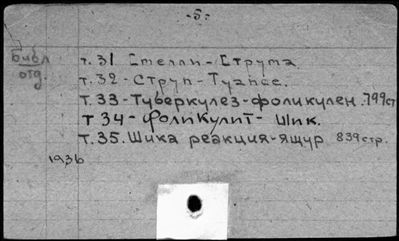 -5-
Библ
отд.
т.31 Стелли-Струма
т.32-Струп-Туапсе.
т.33-Туберкулез-фоликулен.799ст
т 34-Фоликулит-Шик.
т.35.Шика реакция-ящур 839стр.
1936